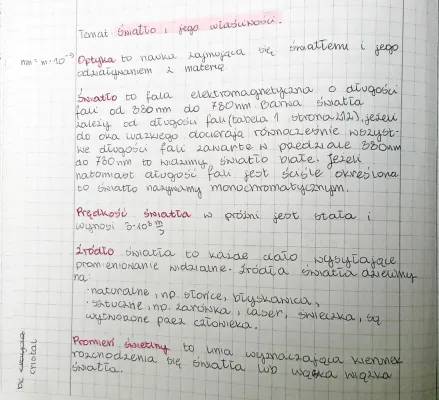 Temat: Światło i jego właściwości.
nm = m · 10⁻⁹
Optyka to nauka zajmująca się światłem i jego
oddziaływaniem z materią.
Światło to fala elektromagnetyczna o długości
fali od 380nm do 780nm. Barwa światła
zależy od długości fali (tabela 1 strona 212), jeżeli
do oka ludzkiego docierają równocześnie wszyst-
kie długości fali zawarte w przedziale 380nm
do 780nm to widzimy światło białe. Jeżeli
natomiast długość fali jest ściśle określona
to światło nazywamy monochromatycznym.
Prędkość światła w próżni jest stała i
wynosi 3·10⁸ m/s
Źródło światła to każde ciało wysyłające
promieniowanie widzialne. Źródła światła dzielimy
na:
· naturalne, np. słońce, błyskawica,
· sztuczne, np. żarówka, laser, świeczka, są
wytworzone przez człowieka.
Promień świetlny to linia wyznaczająca kierunek
rozchodzenia się światła lub wąska wiązka
światła.